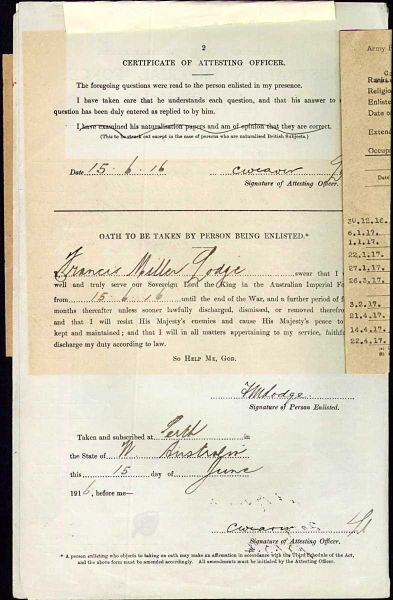 2
CERTIFICATE OF ATTESTING OFFICER.
The foregoing questions were read to the person enlisted in my presence.
I have taken care that he understands each question, and that his answer to
question has been duly entered as replied to by him.
I have examined his naturalisation papers and am of opinion that they are correct.
(This to be struck out except in the case of persons who are naturalised British Subjects.)
Date 15.6.16 CWeaver
Signature of Attesting Officer.
OATH TO BE TAKEN BY PERSON BEING ENLISTED.*
I, Francis Miller Lodge swear that I
well and truly serve our Sovereign Lord the King in the Australian Imperial
from 15 6 16 until the end of the War, and a further period of
months thereafter unless sooner lawfully discharged, dismissed, or removed
and that I will resist His Majesty's enemies and cause His Majesty's peace to
kept and maintained; and that I will in all matters appertaining to my service,
discharge my duty according to law.
SO HELP ME, GOD.
FMLodge
Signature of Person Enlisted.
Taken and subscribed at Perth in
the State of W Australia
this 15 day of June
1916, before me—
CWeaver
Signature of Attesting Officer.
* A person enlisting who objects to taking an oath may make an affirmation in accordance with the Third Schedule of the Act,
and the above form must be amended accordingly. All amendments must be initialed by the Attesting Officer.
Army
Religio
Enliste
Date o
Extend
Occup
Date
30.12.16.
6.1.17.
1.1.17.
22.1.17.
27.1.17.
26.3.17.
3.2.17.
21.4.17.
14.4.17.
22.4.17.